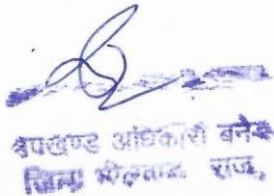 उपखण्ड अधिकारी बनेडा
जिला भीलवाडा राज.